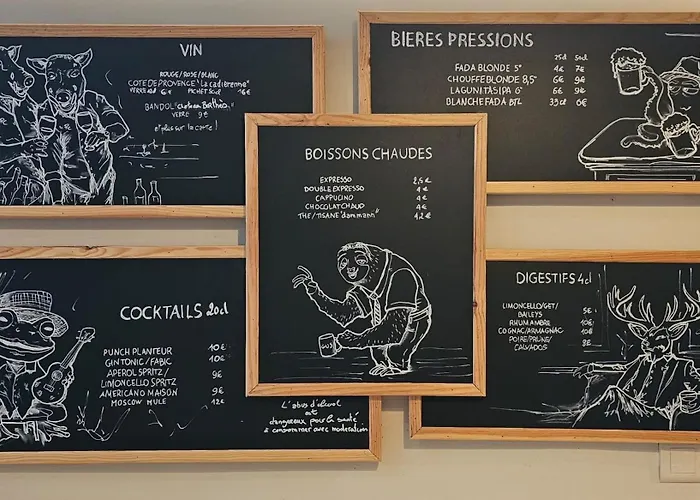 VIN
ROUGE/ROSE/BLANC
COTE DE PROVENCE "La cadiérenne"
VERRE 6€ PICHET 50cl 16€
BANDOL "chateau Barthès"
VERRE 9€
et plus sur la carte!
BIERES PRESSIONS
25cl 50cl
FADA BLONDE 5° 4€ 7€
CHOUFFE BLONDE 8,5° 6€ 9€
LAGUNITAS IPA 6° 6€ 9€
BLANCHE FADA BTL 33cl 6€
BOISSONS CHAUDES
EXPRESSO 2,5€
DOUBLE EXPRESSO 4€
CAPPUCINO 4€
CHOCOLAT CHAUD 4€
THE/TISANE "dammann" 4,2€
COCKTAILS 20cl
PUNCH PLANTEUR 10€
GIN TONIC/FABIC 10€
APEROL SPRITZ/
LIMONCELLO SPRITZ 9€
AMERICANO MAISON 9€
MOSCOW MULE 12€
L'abus d'alcool
est
dangereux pour la santé
à consommer avec modération
DIGESTIFS 4cl
LIMONCELLO/GET/
BAILEYS 5€
RHUM AMBRR 10€
COGNAC/ARMAGNAC 10€
POIRE/PRUNE/
CALVADOS 8€